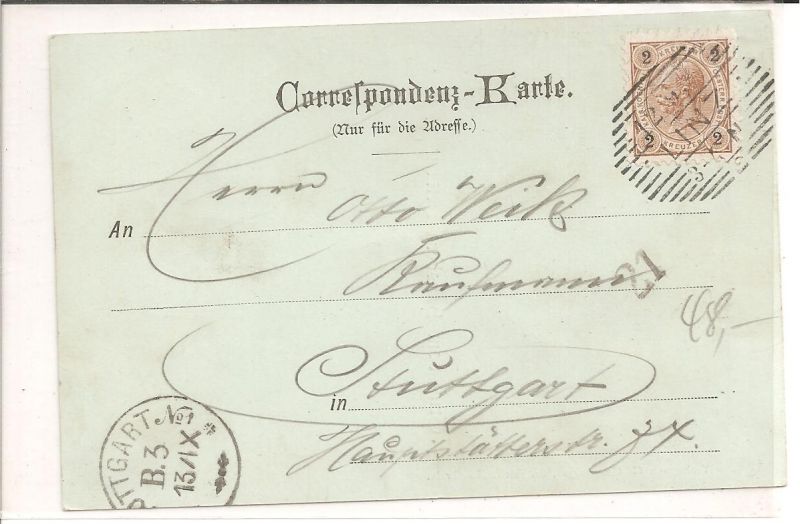 Correspondenz-Karte.
(Nur für die Adresse.)
2 2
KREUZER
2 2
LINZ
An Herrn Otto Weik
Kaufmann
21
48,-
in Stuttgart
Hauptstätterstr.
STUTTGART No 1
B.3
13/IX